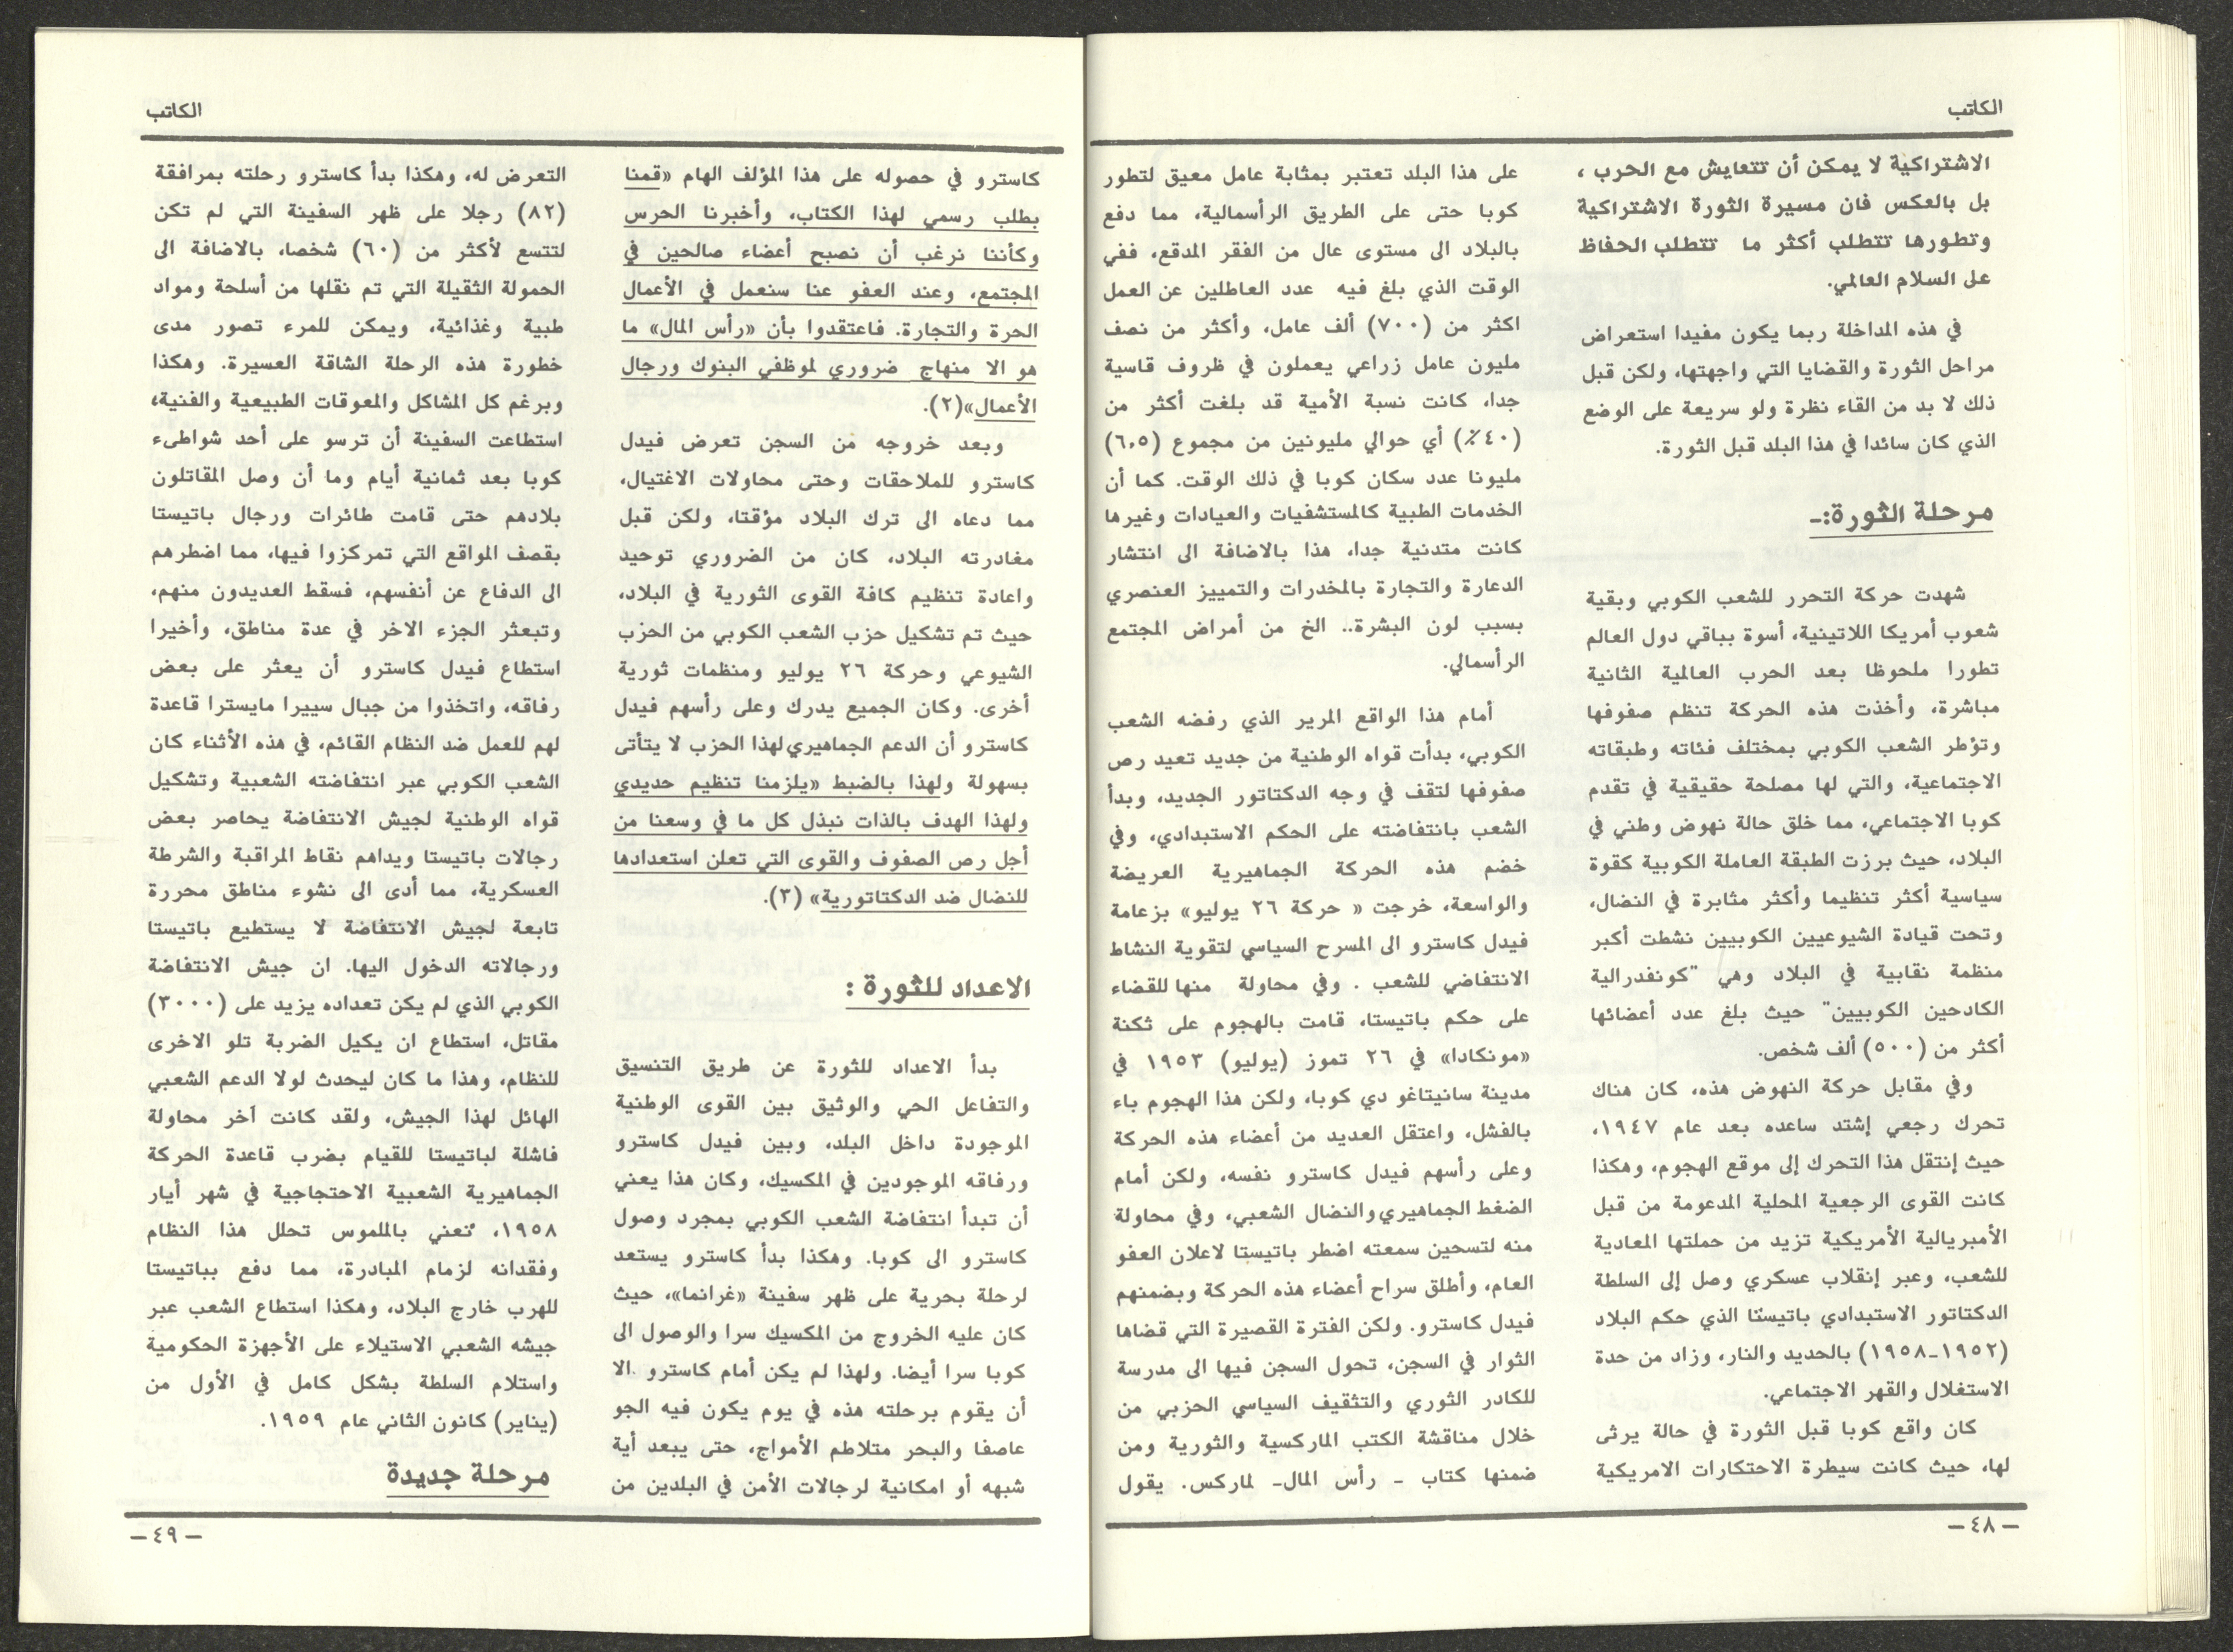 الكاتب
الاشتراكية لا يمكن أن تتعايش مع الحرب ،
بل بالعكس فان مسيرة الثورة الاشتراكية
وتطورها تتطلب أكثر ما تتطلب الحفاظ
على السلام العالمي.
في هذه المداخلة ربما يكون مفيدا استعراض
مراحل الثورة والقضايا التي واجهتها، ولكن قبل
ذلك لا بد من القاء نظرة ولو سريعة على الوضع
الذي كان سائدا في هذا البلد قبل الثورة.
مرحلة الثورة:-
شهدت حركة التحرر للشعب الكوبي وبقية
شعوب أمريكا اللاتينية، أسوة بباقي دول العالم
تطورا ملحوظا بعد الحرب العالمية الثانية
مباشرة، وأخذت هذه الحركة تنظم صفوفها
وتؤطر الشعب الكوبي بمختلف فئاته وطبقاته
الاجتماعية، والتي لها مصلحة حقيقية في تقدم
كوبا الاجتماعي، مما خلق حالة نهوض وطني في
البلاد، حيث برزت الطبقة العاملة الكوبية كقوة
سياسية أكثر تنظيما وأكثر مثابرة في النضال،
وتحت قيادة الشيوعيين الكوبيين نشطت أكبر
منظمة نقابية في البلاد وهي "كونفدرالية
الكادحين الكوبيين" حيث بلغ عدد أعضائها
أكثر من (٥٠٠) ألف شخص.
وفي مقابل حركة النهوض هذه، كان هناك
تحرك رجعي إشتد ساعده بعد عام ١٩٤٧،
حيث إنتقل هذا التحرك إلى موقع الهجوم، وهكذا
كانت القوى الرجعية المحلية المدعومة من قبل
الأمبريالية الأمريكية تزيد من حملتها المعادية
للشعب، وعبر إنقلاب عسكري وصل إلى السلطة
الدكتاتور الاستبدادي باتيستا الذي حكم البلاد
(١٩٥٢-١٩٥٨) بالحديد والنار، وزاد من حدة
الاستغلال والقهر الاجتماعي.
كان واقع كوبا قبل الثورة في حالة يرثى
لها، حيث كانت سيطرة الاحتكارات الامريكية
على هذا البلد تعتبر بمثابة عامل معيق لتطور
كوبا حتى على الطريق الرأسمالية، مما دفع
بالبلاد الى مستوى عال من الفقر المدقع، ففي
الوقت الذي بلغ فيه عدد العاطلين عن العمل
اكثر من (٧٠٠) ألف عامل، وأكثر من نصف
مليون عامل زراعي يعملون في ظروف قاسية
جدا، كانت نسبة الأمية قد بلغت أكثر من
(٤٠٪) أي حوالي مليونين من مجموع (٦,٥)
مليونا عدد سكان كوبا في ذلك الوقت. كما أن
الخدمات الطبية كالمستشفيات والعيادات وغيرها
كانت متدنية جدا، هذا بالاضافة الى انتشار
الدعارة والتجارة بالمخدرات والتمييز العنصري
بسبب لون البشرة.. الخ من أمراض المجتمع
الرأسمالي.
أمام هذا الواقع المرير الذي رفضه الشعب
الكوبي، بدأت قواه الوطنية من جديد تعيد رص
صفوفها لتقف في وجه الدكتاتور الجديد، وبدأ
الشعب بانتفاضته على الحكم الاستبدادي، وفي
خضم هذه الحركة الجماهيرية العريضة
والواسعة، خرجت « حركة ٢٦ يوليو» بزعامة
فيدل كاسترو الى المسرح السياسي لتقوية النشاط
الانتفاضي للشعب . وفي محاولة منها للقضاء
على حكم باتيستا، قامت بالهجوم على ثكنة
«مونكادا» في ٢٦ تموز (يوليو) ١٩٥٣ في
مدينة سانيتاغو دي كوبا، ولكن هذا الهجوم باء
بالفشل، واعتقل العديد من أعضاء هذه الحركة
وعلى رأسهم فيدل كاسترو نفسه، ولكن أمام
الضغط الجماهيري والنضال الشعبي، وفي محاولة
منه لتسحين سمعته اضطر باتيستا لاعلان العفو
العام، وأطلق سراح أعضاء هذه الحركة وبضمنهم
فيدل كاسترو. ولكن الفترة القصيرة التي قضاها
الثوار في السجن، تحول السجن فيها الى مدرسة
للكادر الثوري والتثقيف السياسي الحزبي من
خلال مناقشة الكتب الماركسية والثورية ومن
ضمنها كتاب - رأس المال- لماركس. يقول
- ٤٨ -
الكاتب
كاسترو في حصوله على هذا المؤلف الهام «قمنا
بطلب رسمي لهذا الكتاب، وأخبرنا الحرس
وكأننا نرغب أن نصبح أعضاء صالحين في
المجتمع، وعند العفو عنا سنعمل في الأعمال
الحرة والتجارة. فاعتقدوا بأن «رأس المال» ما
هو الا منهاج ضروري لموظفي البنوك ورجال
الأعمال»(٢).
وبعد خروجه من السجن تعرض فيدل
كاسترو للملاحقات وحتى محاولات الاغتيال،
مما دعاه الى ترك البلاد مؤقتا، ولكن قبل
مغادرته البلاد، كان من الضروري توحيد
واعادة تنظيم كافة القوى الثورية في البلاد،
حيث تم تشكيل حزب الشعب الكوبي من الحزب
الشيوعي وحركة ٢٦ يوليو ومنظمات ثورية
أخرى. وكان الجميع يدرك وعلى رأسهم فيدل
كاسترو أن الدعم الجماهيري لهذا الحزب لا يتأتى
بسهولة ولهذا بالضبط «يلزمنا تنظيم حديدي
ولهذا الهدف بالذات نبذل كل ما في وسعنا من
أجل رص الصفوف والقوى التي تعلن استعدادها
للنضال ضد الدكتاتورية» (٣).
الاعداد للثورة :
بدأ الاعداد للثورة عن طريق التنسيق
والتفاعل الحي والوثيق بين القوى الوطنية
الموجودة داخل البلد، وبين فيدل كاسترو
ورفاقه الموجودين في المكسيك، وكان هذا يعني
أن تبدأ انتفاضة الشعب الكوبي بمجرد وصول
كاسترو الى كوبا. وهكذا بدأ كاسترو يستعد
لرحلة بحرية على ظهر سفينة «غرانما»، حيث
كان عليه الخروج من المكسيك سرا والوصول الى
كوبا سرا أيضا. ولهذا لم يكن أمام كاسترو الا
أن يقوم برحلته هذه في يوم يكون فيه الجو
عاصفا والبحر متلاطم الأمواج، حتى يبعد أية
شبهه أو امكانية لرجالات الأمن في البلدين من
التعرض له، وهكذا بدأ كاسترو رحلته بمرافقة
(٨٢) رجلا على ظهر السفينة التي لم تكن
لتتسع لأكثر من (٦٠) شخصا، بالاضافة الى
الحمولة الثقيلة التي تم نقلها من أسلحة ومواد
طبية وغذائية، ويمكن للمرء تصور مدى
خطورة هذه الرحلة الشاقة العسيرة. وهكذا
وبرغم كل المشاكل والمعوقات الطبيعية والفنية،
استطاعت السفينة أن ترسو على أحد شواطىء
كوبا بعد ثمانية أيام وما أن وصل المقاتلون
بلادهم حتى قامت طائرات ورجال باتيستا
بقصف المواقع التي تمركزوا فيها، مما اضطرهم
الى الدفاع عن أنفسهم، فسقط العديدون منهم،
وتبعثر الجزء الاخر في عدة مناطق، وأخيرا
استطاع فيدل كاسترو أن يعثر على بعض
رفاقه، واتخذوا من جبال سييرا مايسترا قاعدة
لهم للعمل ضد النظام القائم، في هذه الأثناء كان
الشعب الكوبي عبر انتفاضته الشعبية وتشكيل
قواه الوطنية لجيش الانتفاضة يحاصر بعض
رجالات باتيستا ويداهم نقاط المراقبة والشرطة
العسكرية، مما أدى الى نشوء مناطق محررة
تابعة لجيش الانتفاضة لا يستطيع باتيستا
ورجالاته الدخول اليها. ان جيش الانتفاضة
الكوبي الذي لم يكن تعداده يزيد على (٣٠٠٠)
مقاتل، استطاع ان يكيل الضربة تلو الاخرى
للنظام، وهذا ما كان ليحدث لولا الدعم الشعبي
الهائل لهذا الجيش، ولقد كانت آخر محاولة
فاشلة لباتيستا للقيام بضرب قاعدة الحركة
الجماهيرية الشعبية الاحتجاجية في شهر أيار
١٩٥٨، تعني بالملموس تحلل هذا النظام
وفقدانه لزمام المبادرة، مما دفع بباتيستا
للهرب خارج البلاد، وهكذا استطاع الشعب عبر
جيشه الشعبي الاستيلاء على الأجهزة الحكومية
واستلام السلطة بشكل كامل في الأول من
(يناير) كانون الثاني عام ١٩٥٩.
مرحلة جديدة
- ٤٩ -